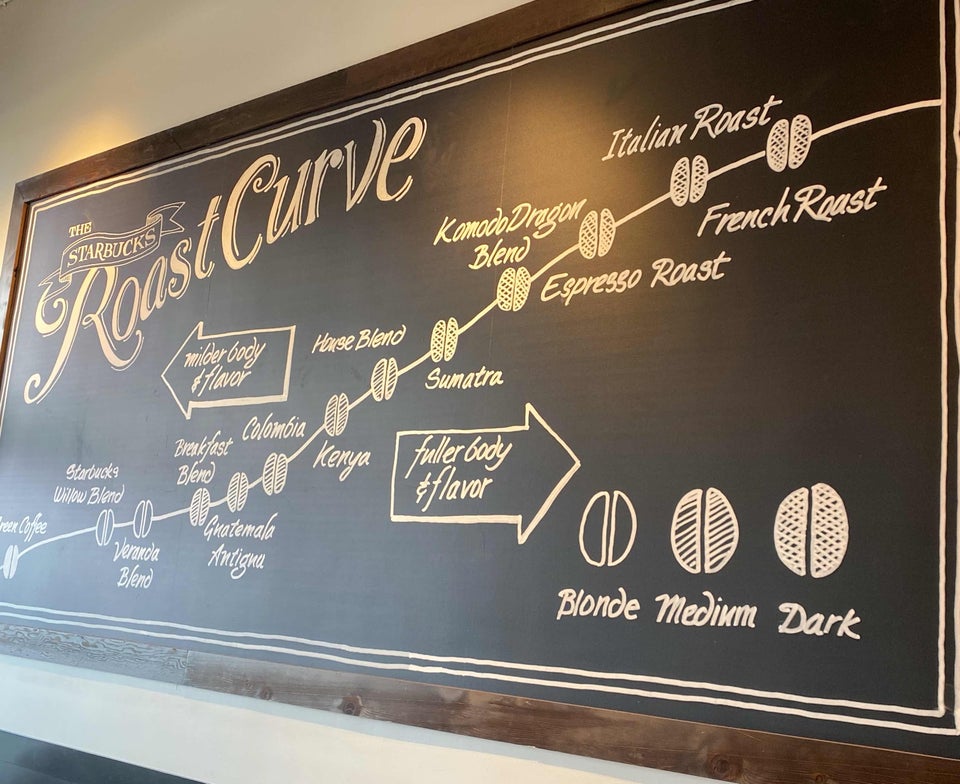 THE
STARBUCKS
Roast Curve
milder body
& flavor
fuller body
& flavor
Green Coffee
Starbucks
Willow Blend
Veranda
Blend
Breakfast
Blend
Guatemala
Antigua
Colombia
Kenya
House Blend
Sumatra
Komodo Dragon
Blend
Espresso Roast
Italian Roast
French Roast
Blonde Medium Dark